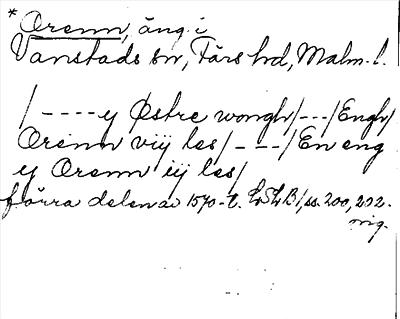 * Orenn, äng i
Vanstads sn, Färs hd, Malm. l.
/----y Østre wongh/---/Engh/
Orenn viÿ les/---/En eng
y Orenn iÿ les/
förra delen av 1570-t. LSLB 1, ss. 200, 202.
orig.